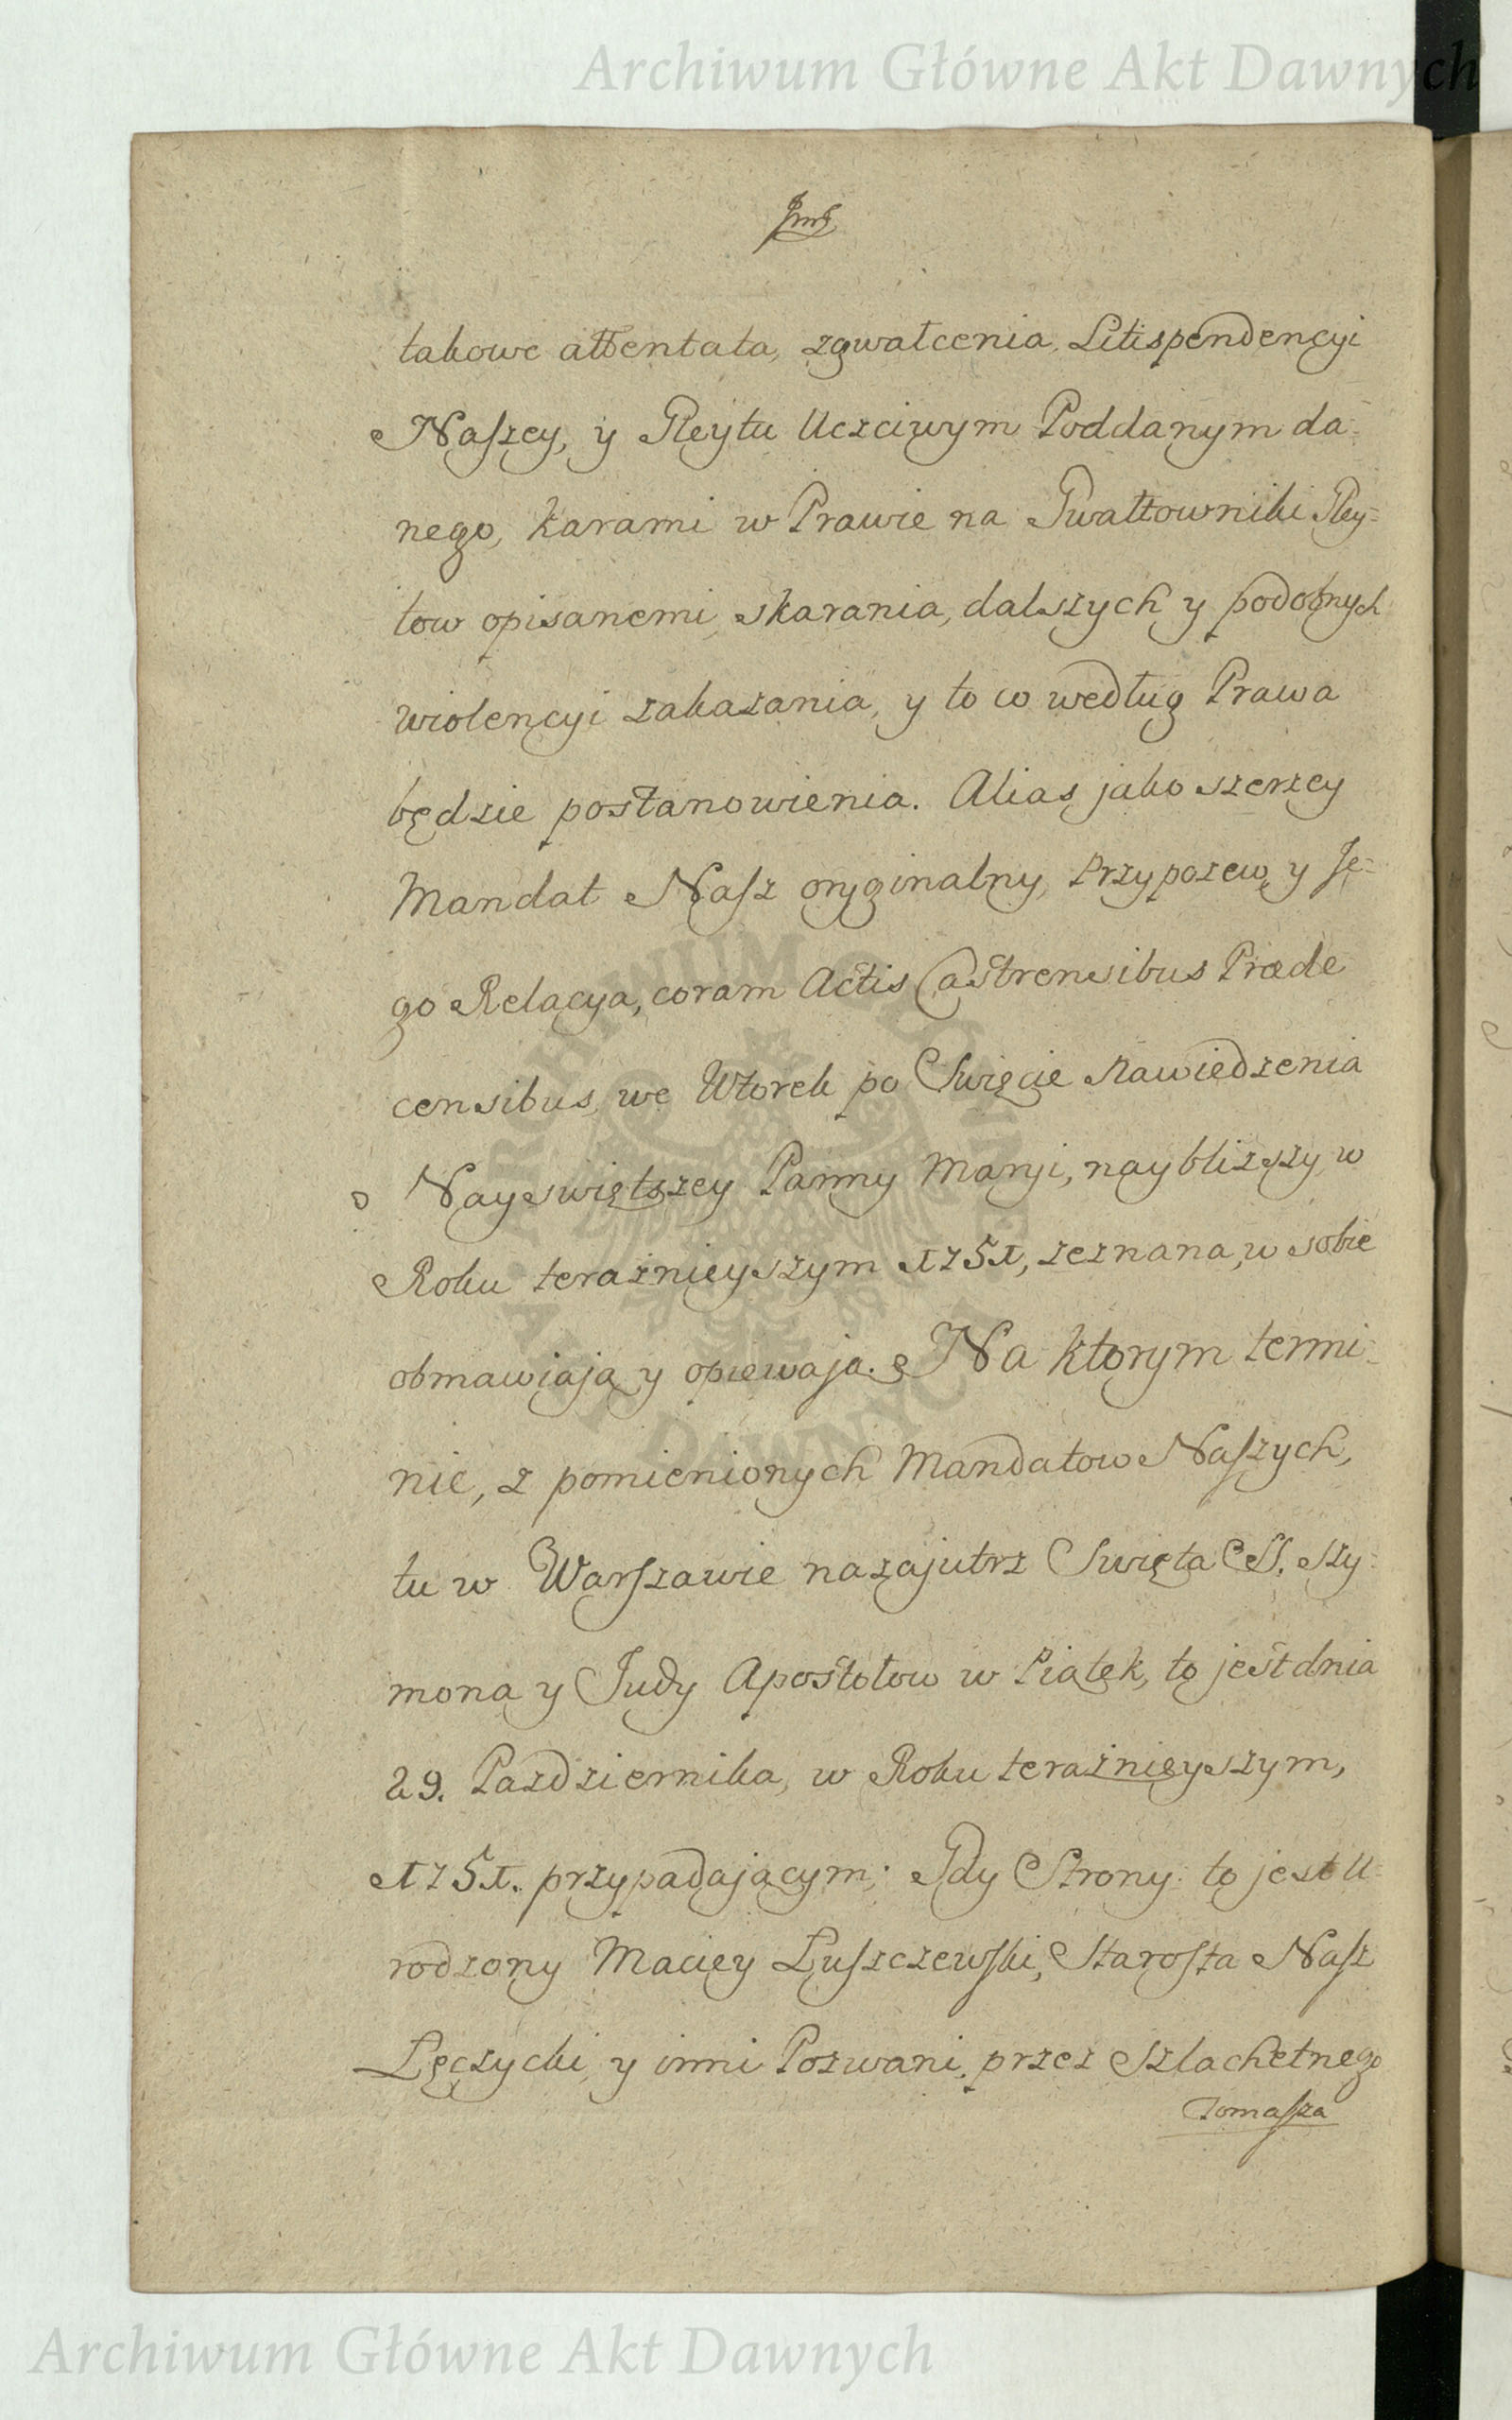 Archiwum Główne Akt Dawnych
takowe attentata, zgwałcenia, Litispendencyi
Naszey, y Gleytu Uczciwym Poddanym da-
nego, karami w Prawie na Gwałtowniki Gley-
tow opisanemi, skarania, dalszych y podobnych
wiolencyi zakazania, y to co według Prawa
będzie postanowienia. Alias jako szerzey
Mandat Nasz oryginalny, Przypozew, y Je-
go Relacya, coram Actis Castrensibus Præde-
censibus, we Wtorek po Swięcie Nawiedzenia
Nayswiętszey Panny Maryi, naybliższy w
Roku teraznieyszym 1751, zeznana, w sobie
obmawiaią y opiewaią. Na ktorym termi-
nie, z pomienionych Mandatow Naszych,
tu w Warszawie nazajutrz Swięta SS. Szy-
mona y Judy Apostołow w Piątek, to jest dnia
29. Pazdziernika, w Roku teraznieyszym,
1751. przypadającym; Gdy Strony. to jest U-
rodzony Maciey Łuszczewski, Starosta Nasz
Łęczycki, y inni Pozwani, przez Szlachetnego
Tomasza
ARCHIWUM GŁÓWNE AKT DAWNYCH
Archiwum Główne Akt Dawnych